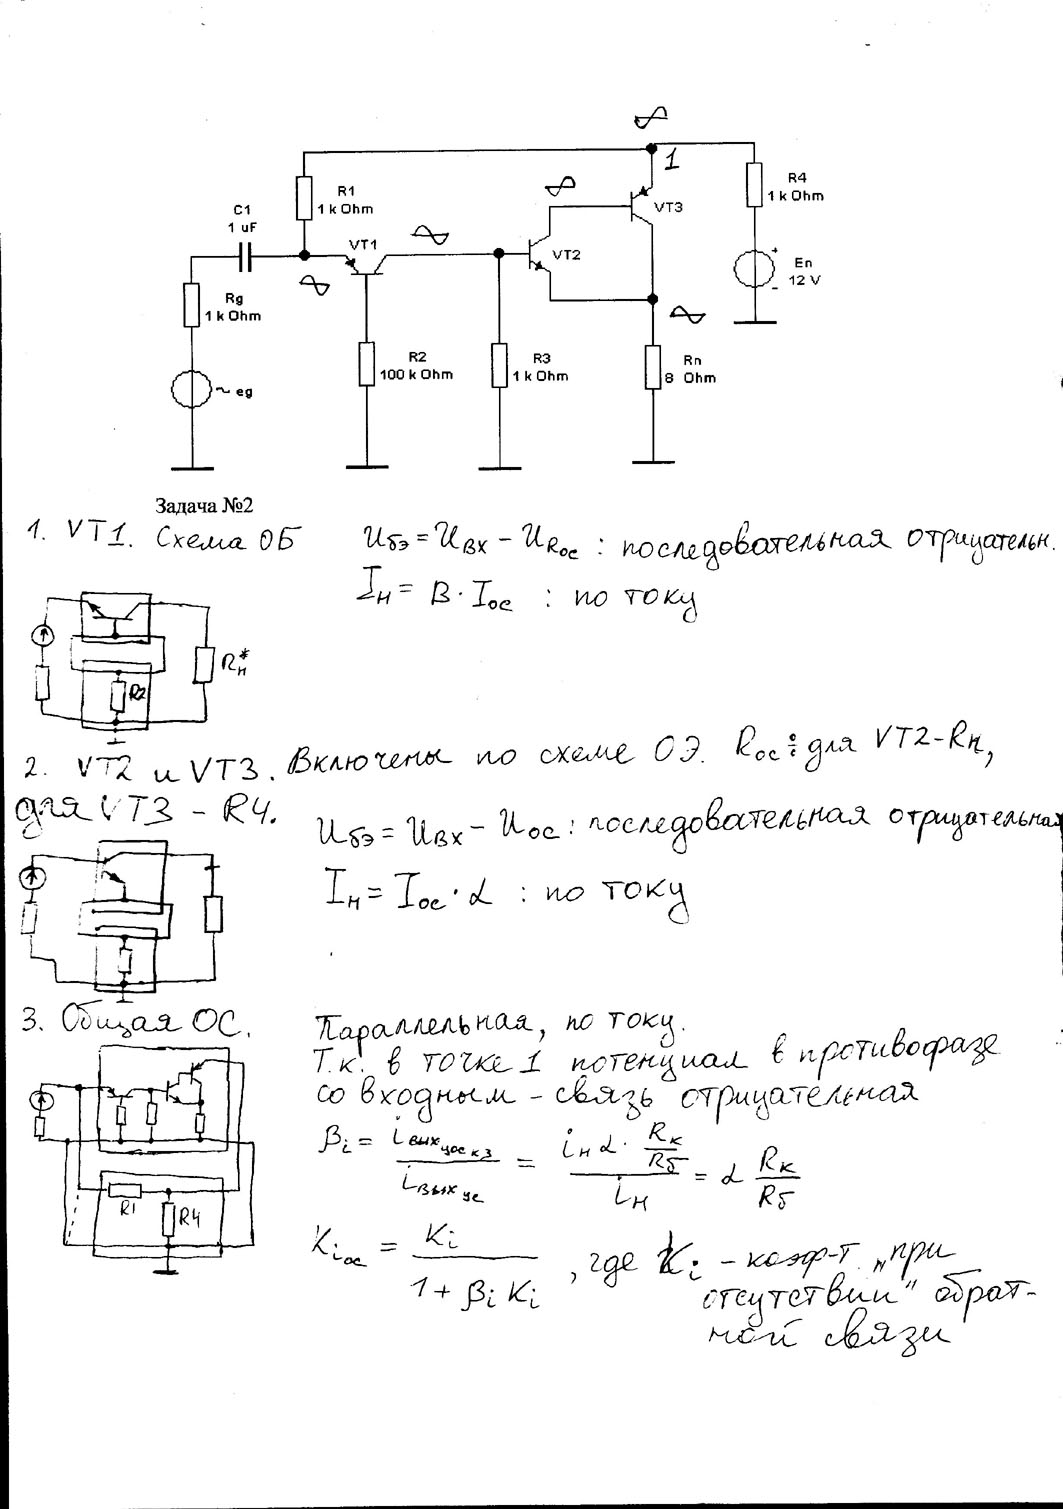 1
R1
1 k Ohm
R4
1 k Ohm
C1
1 uF
VT1
VT2
VT3
+
En
12 V
-
Rg
1 k Ohm
R2
100 k Ohm
R3
1 k Ohm
Rn
8 Ohm
~ eg
Задача №2
1. VT1. Схема ОБ
Uбэ = Uвх - URос : последовательная отрицательн.
Iн = β · Iос : по току
Rн*
R2
2. VT2 и VT3. Включены по схеме ОЭ. Rос : для VT2-Rн,
для VT3 - R4.
Uбэ = Uвх - Uос : последовательная отрицательная
Iн = Iос · α : по току
3. Общая ОС.
Параллельная, по току.
Т.к. в точке 1 потенциал в противофазе
со входным - связь отрицательная
R1
R4
βi = iвых цос кз / iвых ус = iн α · Rк/Rб / iн = α Rк/Rб
Kiос = Ki / 1 + βi Ki , где Ki - коэф-т „при
отсутствии" обрат-
ной связи